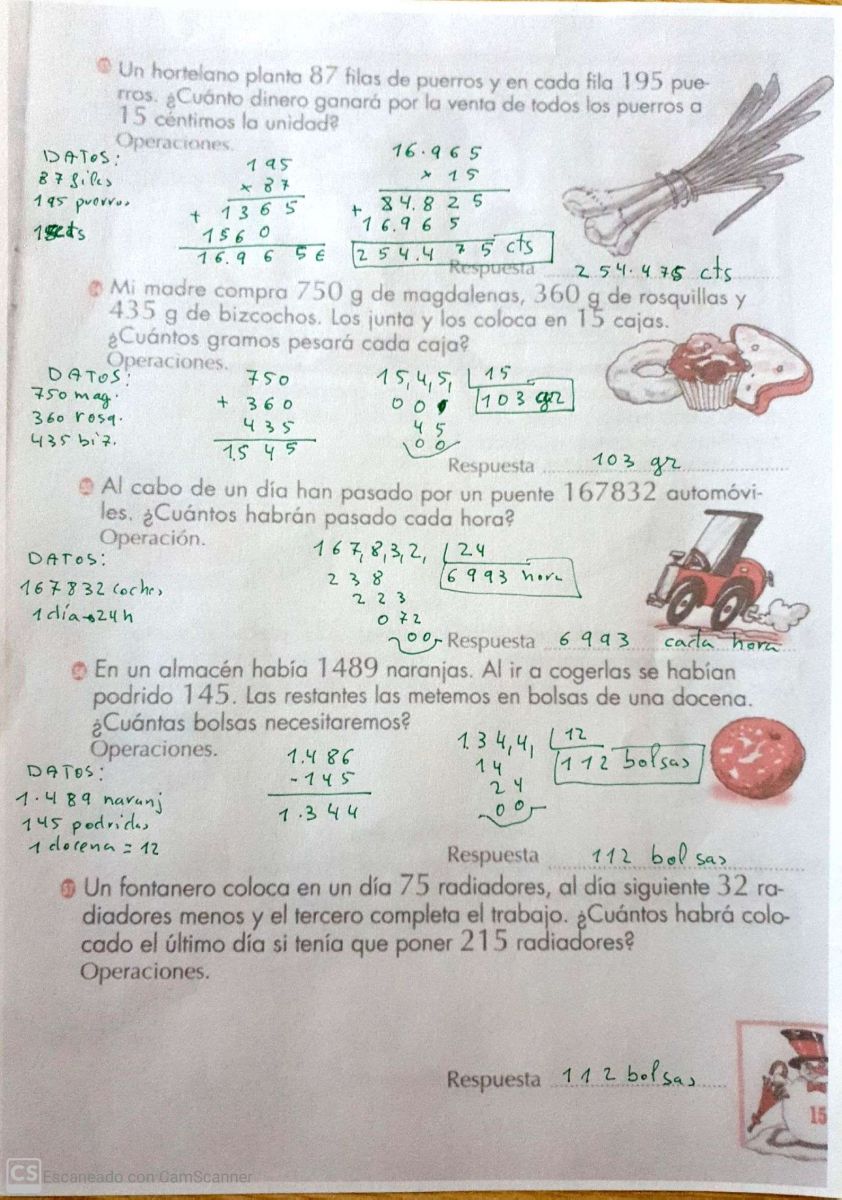 Un hortelano planta 87 filas de puerros y en cada fila 195 pue-
rros. ¿Cuánto dinero ganará por la venta de todos los puerros a
15 céntimos la unidad?
Operaciones.
DATOS:
87 filas
195 puerros
15 cts
195
× 87
+ 1365
1560
16.965 €
16.965
× 15
+ 84.825
16.965
254.475 cts
Respuesta 254.475 cts
Mi madre compra 750 g de magdalenas, 360 g de rosquillas y
435 g de bizcochos. Los junta y los coloca en 15 cajas.
¿Cuántos gramos pesará cada caja?
Operaciones.
DATOS:
750 mag.
360 rosq.
435 biz.
750
+ 360
435
1.545
15,4,5, 15
00 103 gr
45
00
Respuesta 103 gr
Al cabo de un día han pasado por un puente 167832 automóvi-
les. ¿Cuántos habrán pasado cada hora?
Operación.
DATOS:
167832 coches
1 día → 24h
167,8,3,2, 24
238 6993 hora
223
072
00
Respuesta 6993 cada hora
En un almacén había 1489 naranjas. Al ir a cogerlas se habían
podrido 145. Las restantes las metemos en bolsas de una docena.
¿Cuántas bolsas necesitaremos?
Operaciones.
DATOS:
1.489 naranj
145 podridas
1 docena = 12
1.486
-145
1.344
1.34,4, 12
14 112 bolsas
24
00
Respuesta 112 bolsas
Un fontanero coloca en un día 75 radiadores, al día siguiente 32 ra-
diadores menos y el tercero completa el trabajo. ¿Cuántos habrá colo-
cado el último día si tenía que poner 215 radiadores?
Operaciones.
Respuesta 112 bolsas
15
CS Escaneado con CamScanner